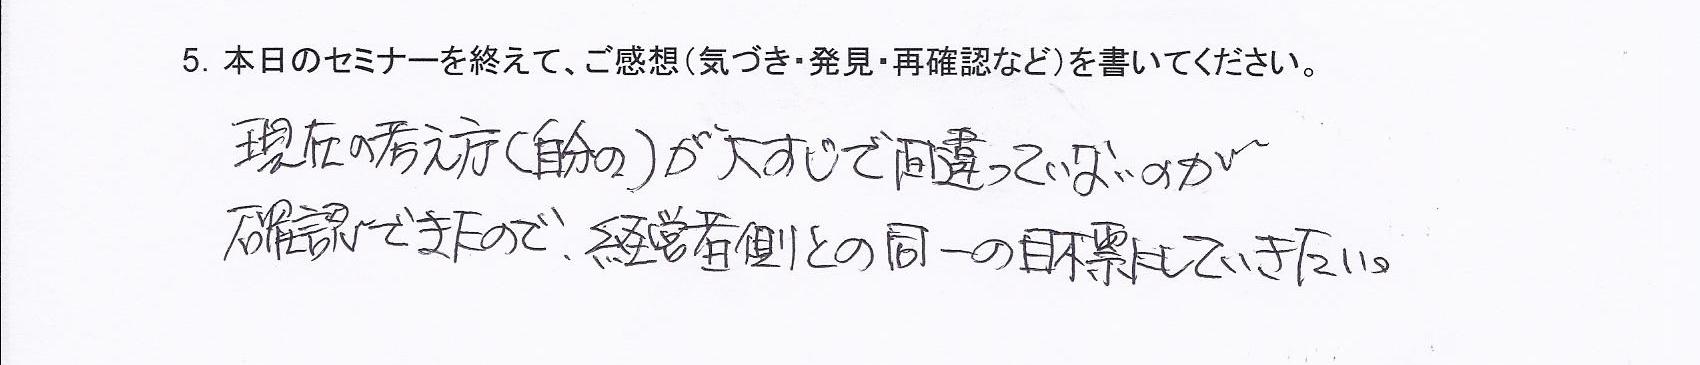 5. 本日のセミナーを終えて、ご感想（気づき・発見・再確認など）を書いてください。
現在の考え方（自分の）が大すじで間違っていないのが
確認できたので、経営者側との同一の目標にしていきたい。